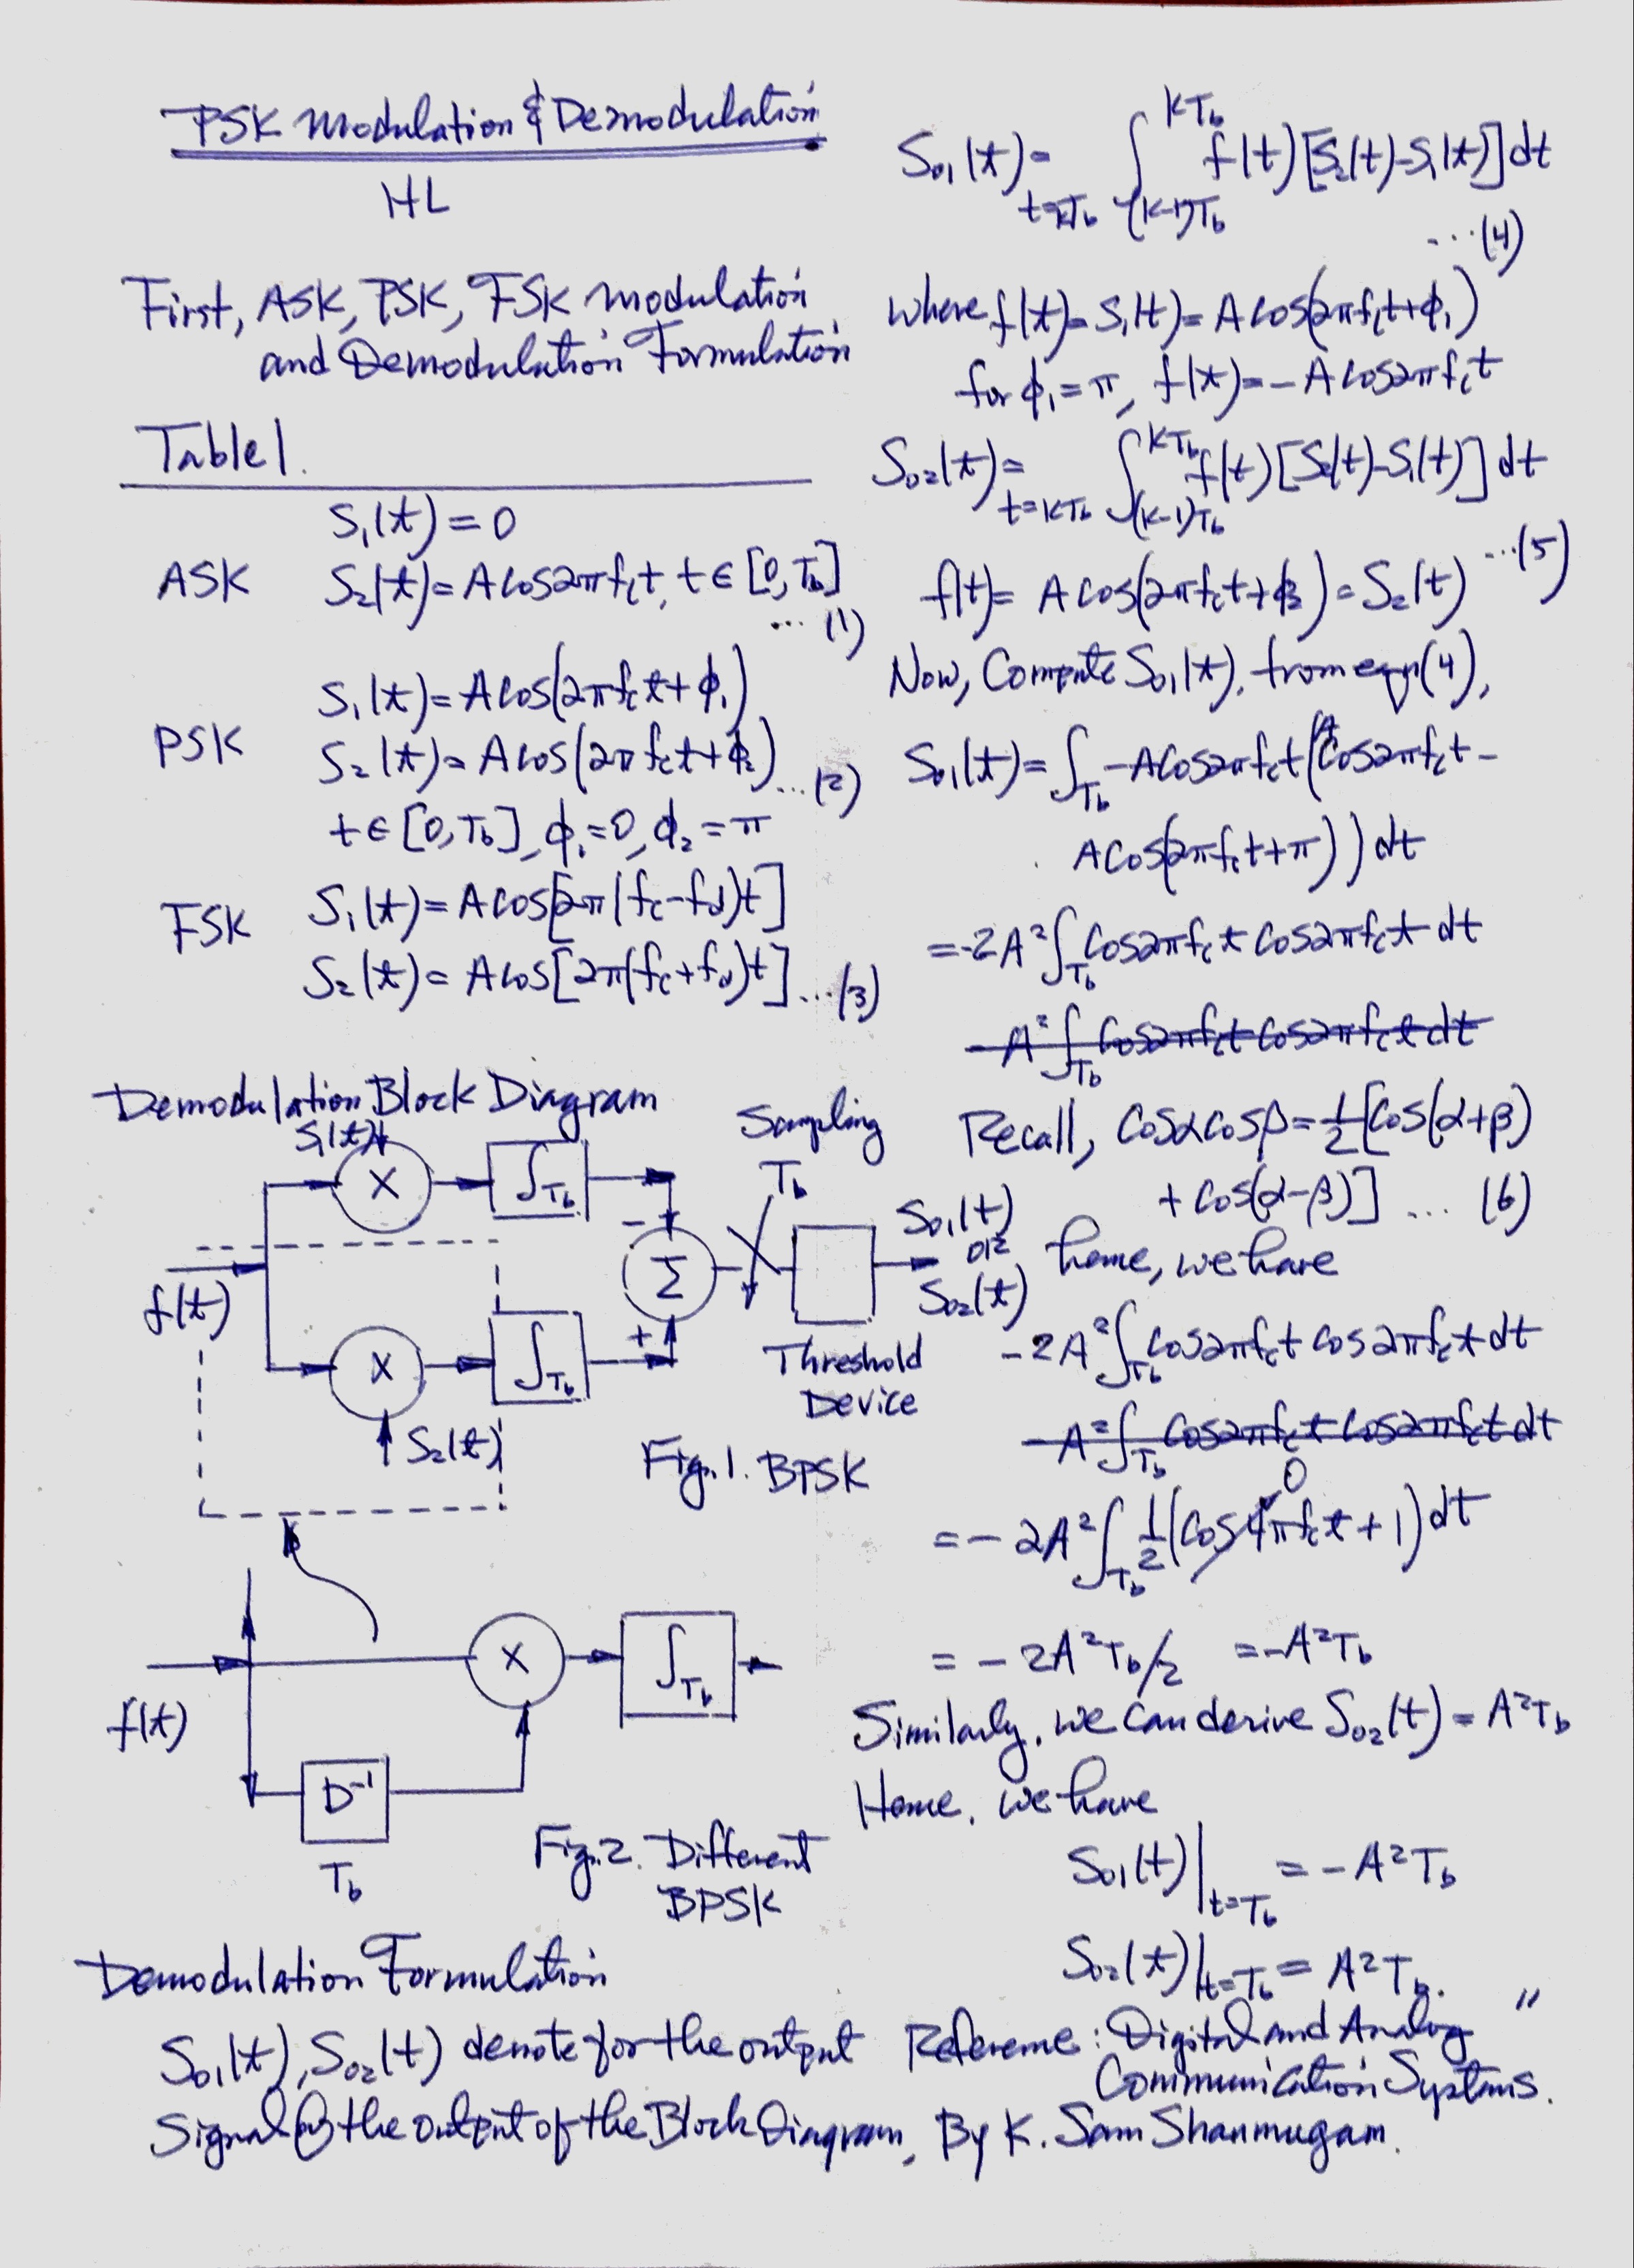 PSK Modulation & Demodulation
HL
First, ASK, PSK, FSK modulation
and Demodulation Formulation
Table 1.
S₁(t) = 0
ASK S₂(t) = A cos2πf_c t, t ∈ [0, T_b]
... (1)
S₁(t) = A cos(2πf_c t + φ₁)
PSK S₂(t) = A cos(2πf_c t + φ₂) ... (2)
t ∈ [0, T_b], φ₁ = 0, φ₂ = π
FSK S₁(t) = A cos[2π(f_c - f_d)t]
S₂(t) = A cos[2π(f_c + f_d)t] ... (3)
Demodulation Block Diagram
S₁(t)
Sampling
X
∫_Tb
T_b
-
f(t)
Σ
S₀₁(t)
or
S₀₂(t)
X
∫_Tb
+
Threshold
Device
S₂(t)
Fig. 1. BPSK
X
∫_Tb
f(t)
D⁻¹
T_b
Fig. 2. Different
BPSK
Demodulation Formulation
S₀₁(t), S₀₂(t) denote for the output
Signal @ the output of the Block Diagram,
S₀₁(t)_{t=kT_b} = ∫_{(k-1)T_b}^{kT_b} f(t)[S₂(t) - S₁(t)] dt
... (4)
where f(t) = S₁(t) = A cos(2πf_c t + φ₁)
for φ₁ = π, f(t) = - A cos2πf_c t
S₀₂(t)_{t=kT_b} = ∫_{(k-1)T_b}^{kT_b} f(t)[S₂(t) - S₁(t)] dt
... (5)
f(t) = A cos(2πf_c t + φ₂) = S₂(t)
Now, Compute S₀₁(t), from eqn(4),
S₀₁(t) = ∫_Tb -A cos2πf_c t (A cos2πf_c t -
A cos(2πf_c t + π)) dt
= -2A² ∫_Tb cos2πf_c t cos2πf_c t dt
- A² ∫_Tb cos2πf_c t cos2πf_c t dt
Recall, cosα cosβ = ½[cos(α+β)
+ cos(α-β)] ... (6)
hence, we have
-2A² ∫_Tb cos2πf_c t cos2πf_c t dt
- A² ∫_Tb cos2πf_c t cos2πf_c t dt
0
= - 2A² ∫_Tb ½(cos4πf_c t + 1) dt
= - 2A² T_b/2 = -A² T_b
Similarly, we can derive S₀₂(t) = A² T_b
Hence, we have
S₀₁(t)|_{t=T_b} = - A² T_b
S₀₂(t)|_{t=T_b} = A² T_b.
"
Reference: Digital and Analog
Communication Systems.
By K. Sam Shanmugam.